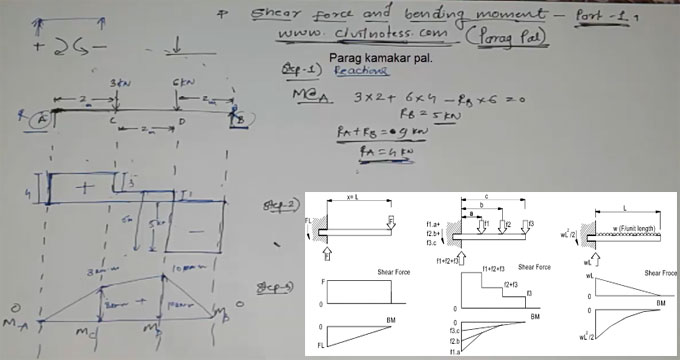 * Shear force and bending moment - Part-1,
www.civilnotess.com (Parag Pal)
Parag kamakar pal.
Step-1) Reactions
M@A 3×2 + 6×4 - RB×6 = 0
RB = 5 KN
RA + RB = 9 KN
RA = 4 KN
+ -
3KN 6KN
2m 2m
A C D B
2m
4 + 3 1
5KN
-
Step-2)
Step-3)
10KNm
0 + 0
MA MC MD MB
x= L
FL F
F
Shear Force
F
0
BM
0
FL
c
b
a
f1.a+
f2.b+
f3.c
f1 f2 f3
f1+f2+f3
Shear Force
f1+f2+f3
f2+f3
f3
0
BM
0
f3.c
f2.b
f1.a
L
w (F/unit length)
wL²/2
wL
Shear Froce
wL
0
BM
0
wL²/2